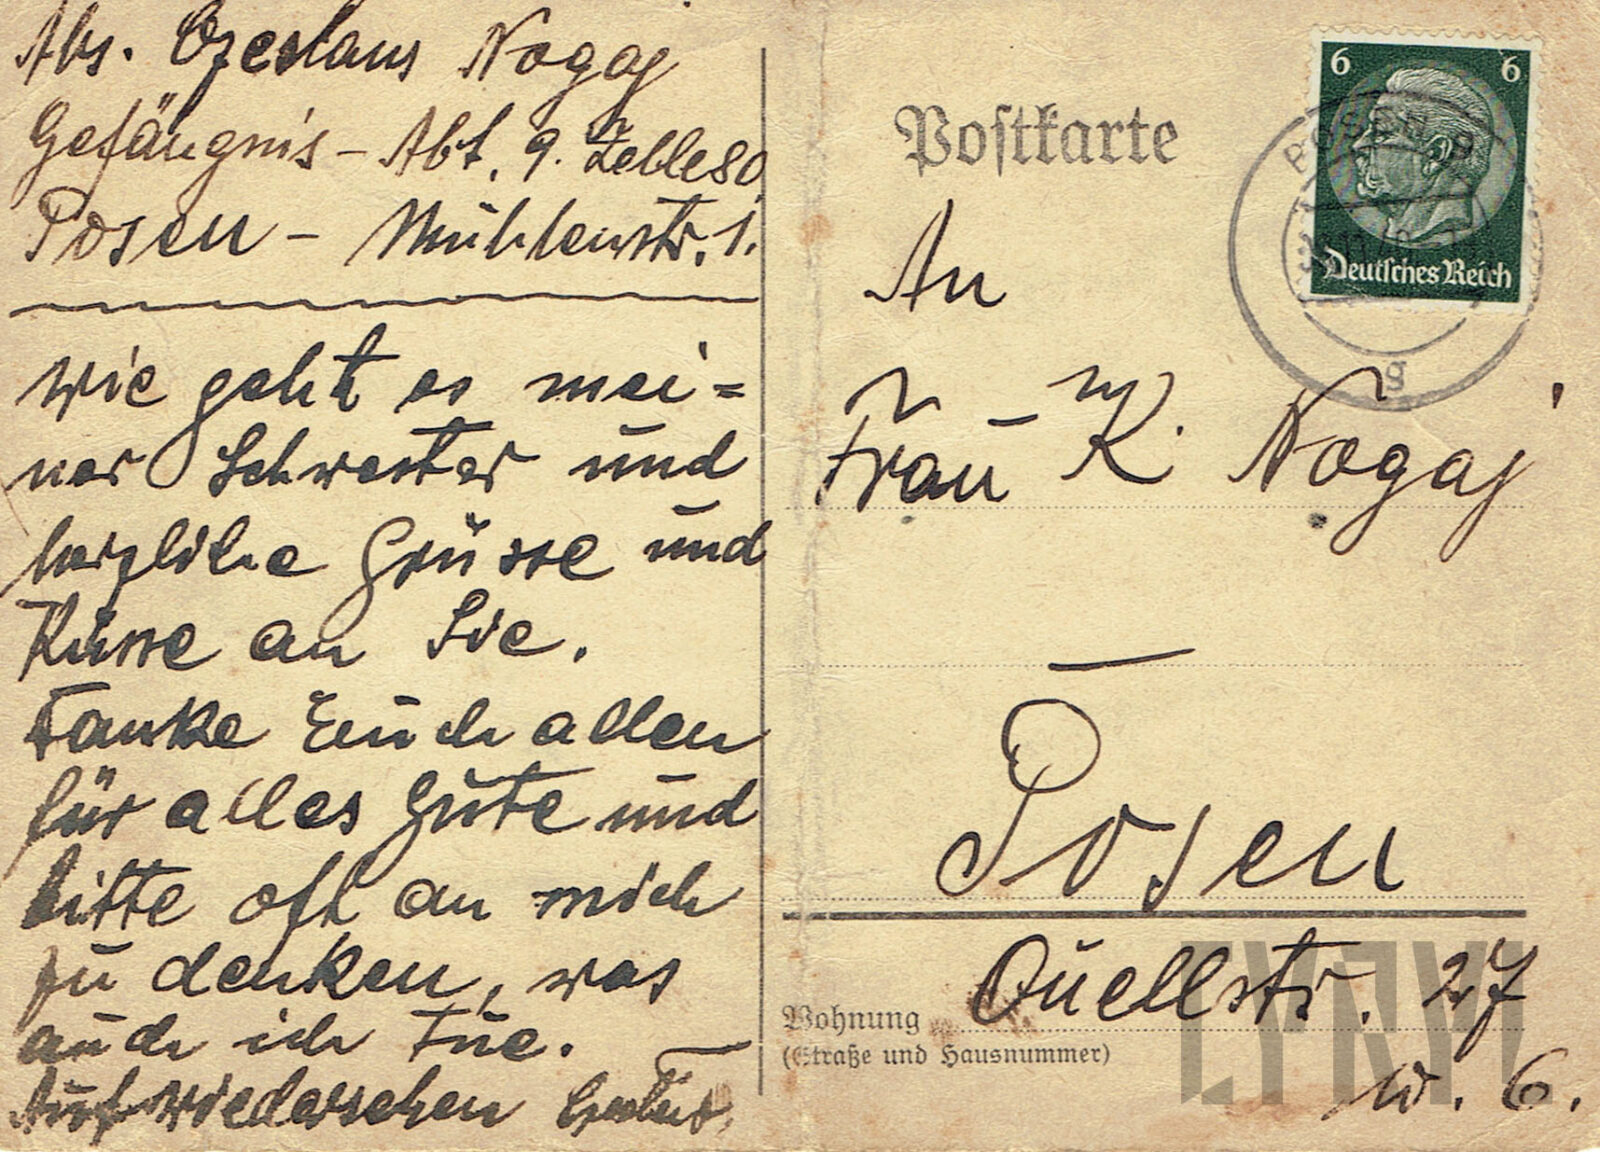 Abs. Czeslaus Nogaj
Gefängnis - Abt. 9. Zelle 80
Posen - Mühlenstr. 1.
Wie geht es mei=
ner Schwester und
herzliche Grüsse und
Küsse an Sie.
Danke Euch allen
für alles Gute und
bitte oft an mich
zu denken, was
auch ich tue.
Auf wiedersehen
Postkarte
6 6
POSEN
Deutsches Reich
g
An
Frau K. Nogaj
Posen
Quellstr. 27
Wohnung
(Straße und Hausnummer)
w. 6.
LYRYL